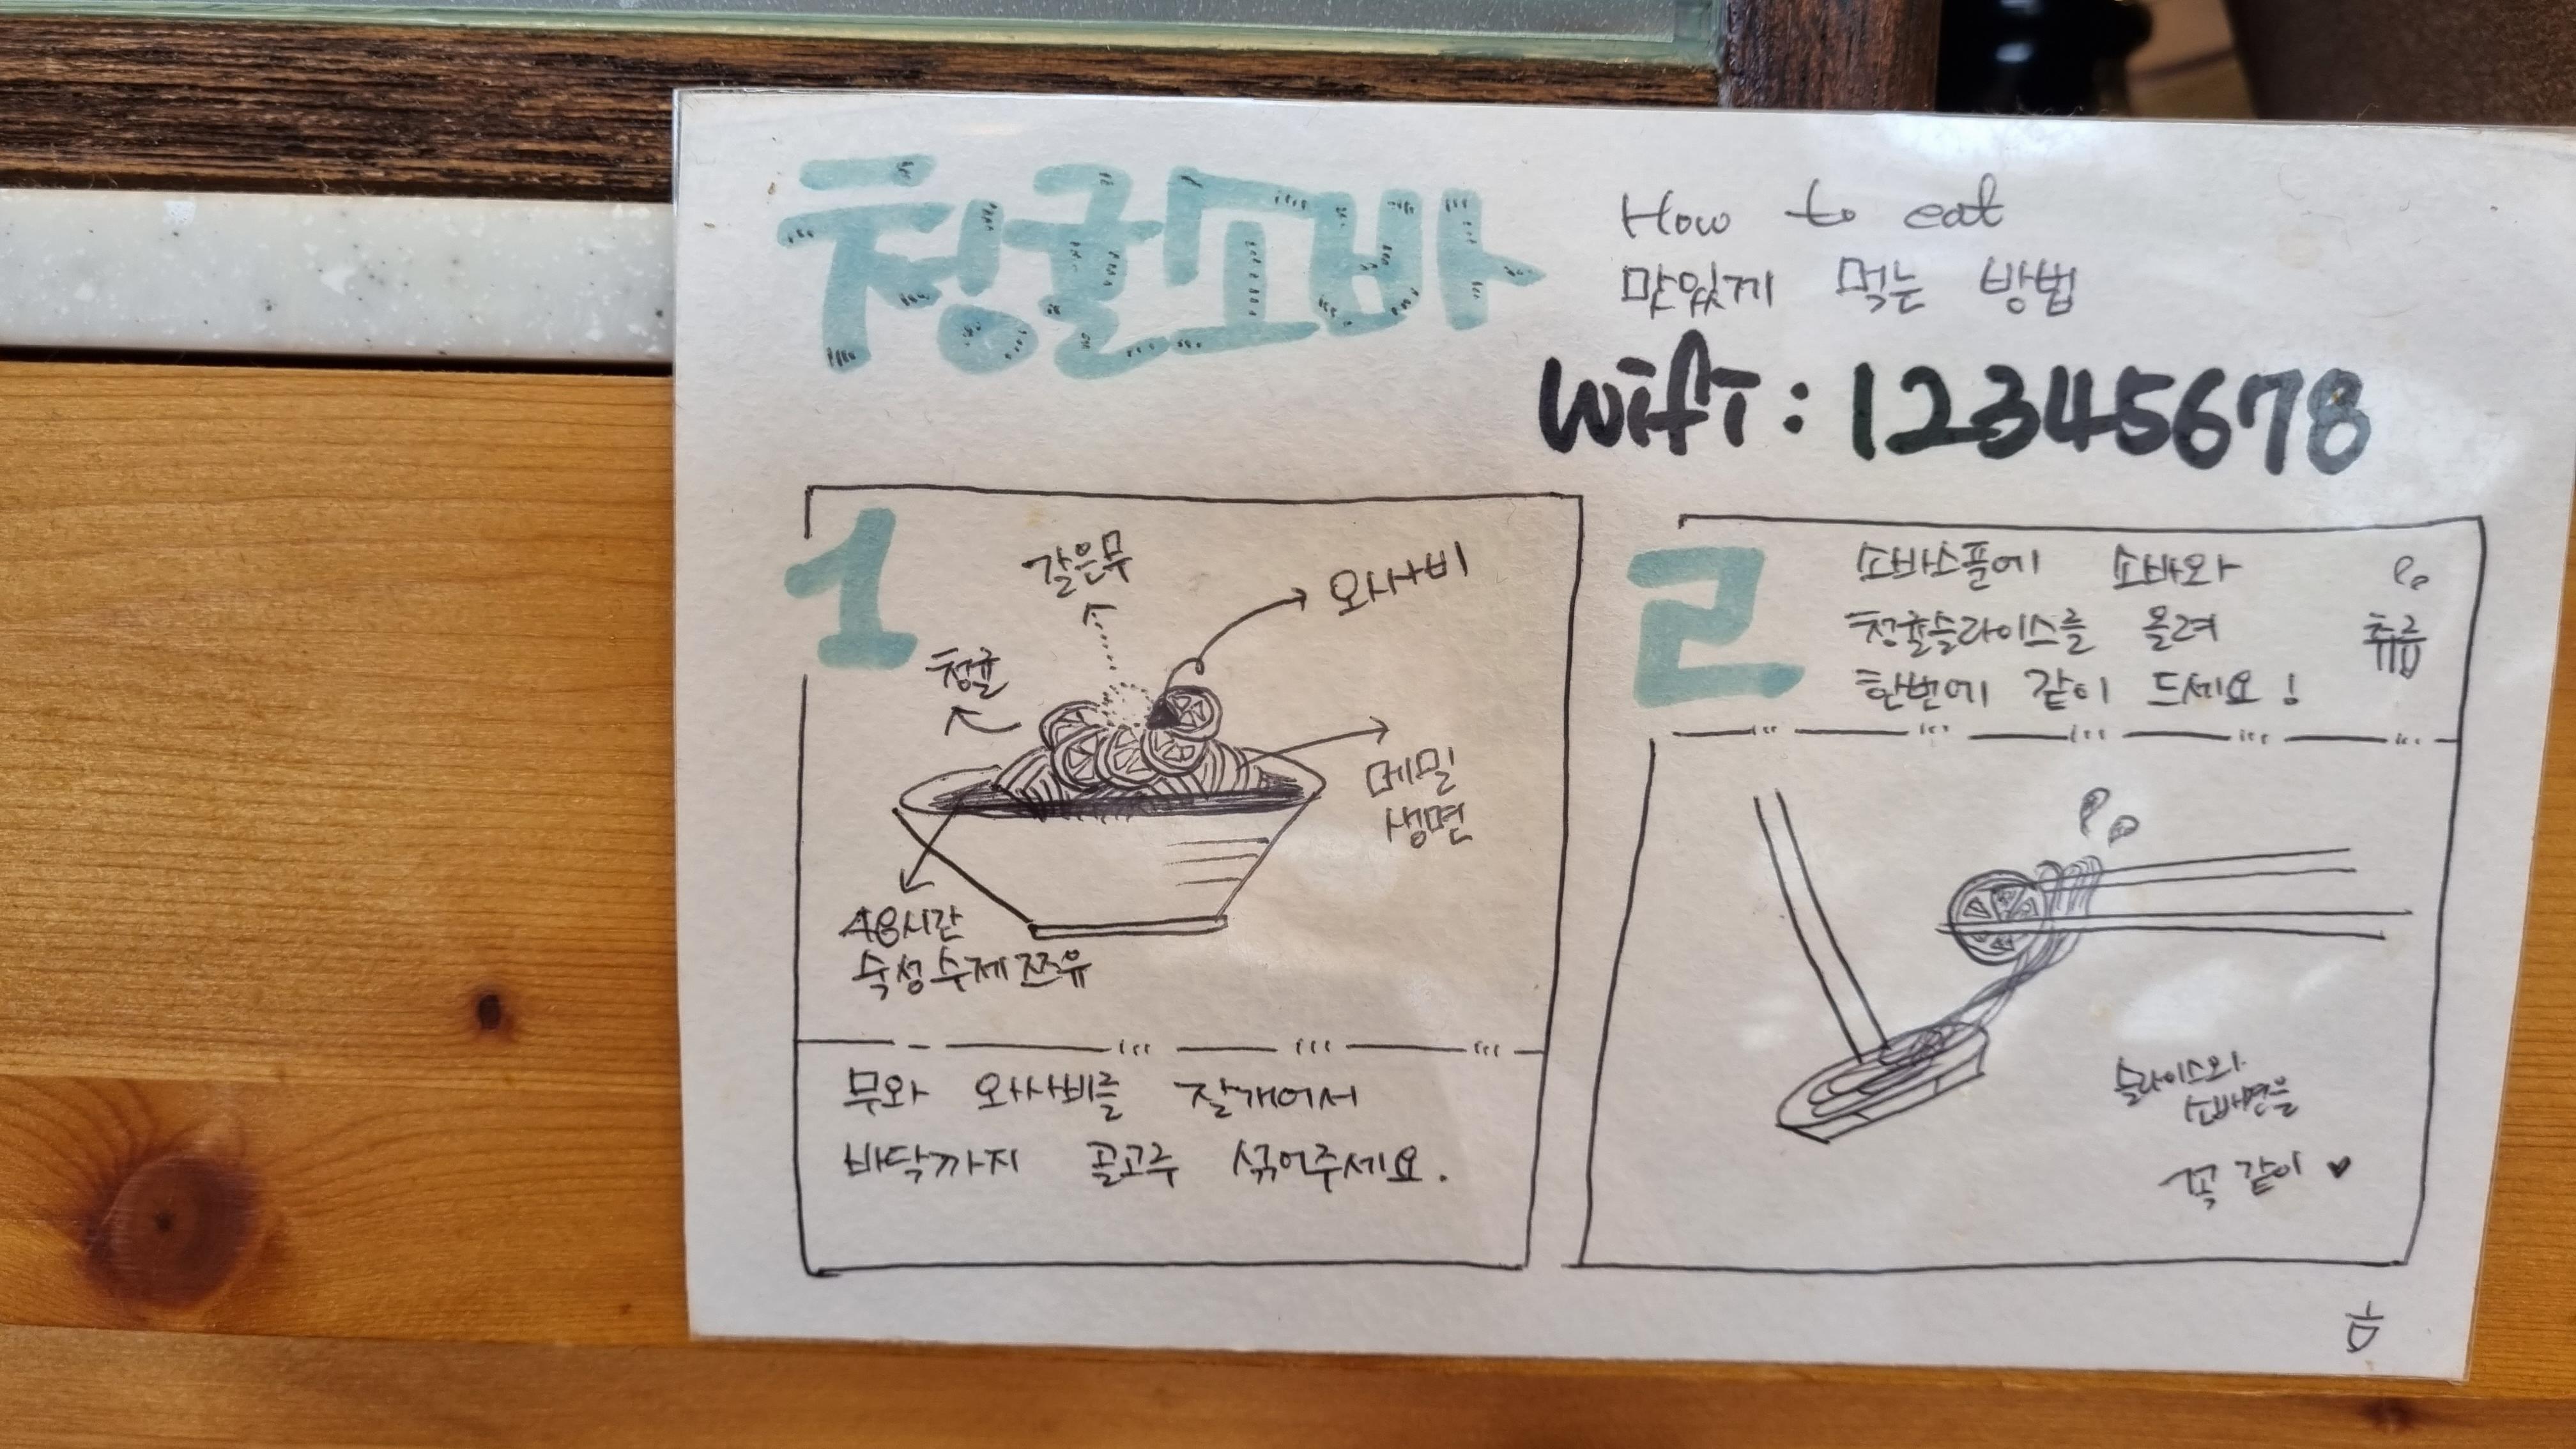 청귤소바
How to eat
맛있게 먹는 방법
wifi : 12345678
1
갈은무
와사비
청귤
메밀
생면
48시간
숙성 수제 쯔유
무와 와사비를 잘개어서
바닥까지 골고루 섞어주세요.
2
소바스푼에 소바와
청귤슬라이스를 올려
한번에 같이 드세요!
츄릅
슬라이스와
소바면을
꼭 같이 ♥